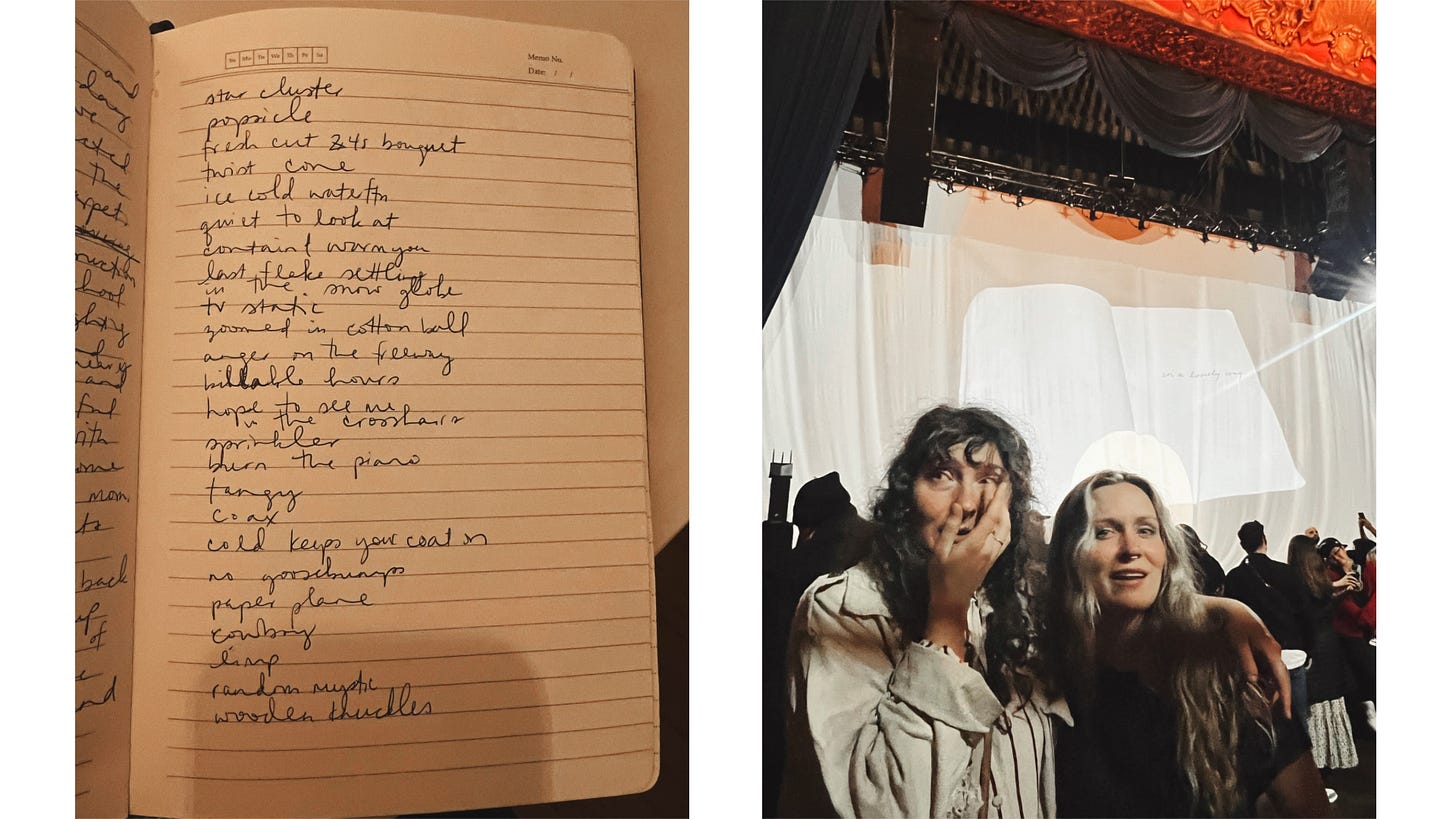 and
day
we
the
back
up
of
and
Su Mo Tu We Th Fr Sa
Memo No.
Date: / /
star cluster
popsicle
fresh cut 2x4s bouquet
twist cone
ice cold water
quiet to look at
contain I warn you
last flake settling
in the snow globe
tv static
zoomed in cotton ball
anger on the freeway
billable hours
hope to see me
in the crosshairs
sprinkler
burn the piano
tangy
coax
cold keeps your coat on
no goosebumps
paper plane
cowboy
limp
random mystic
wooden knuckles
in a lonely way